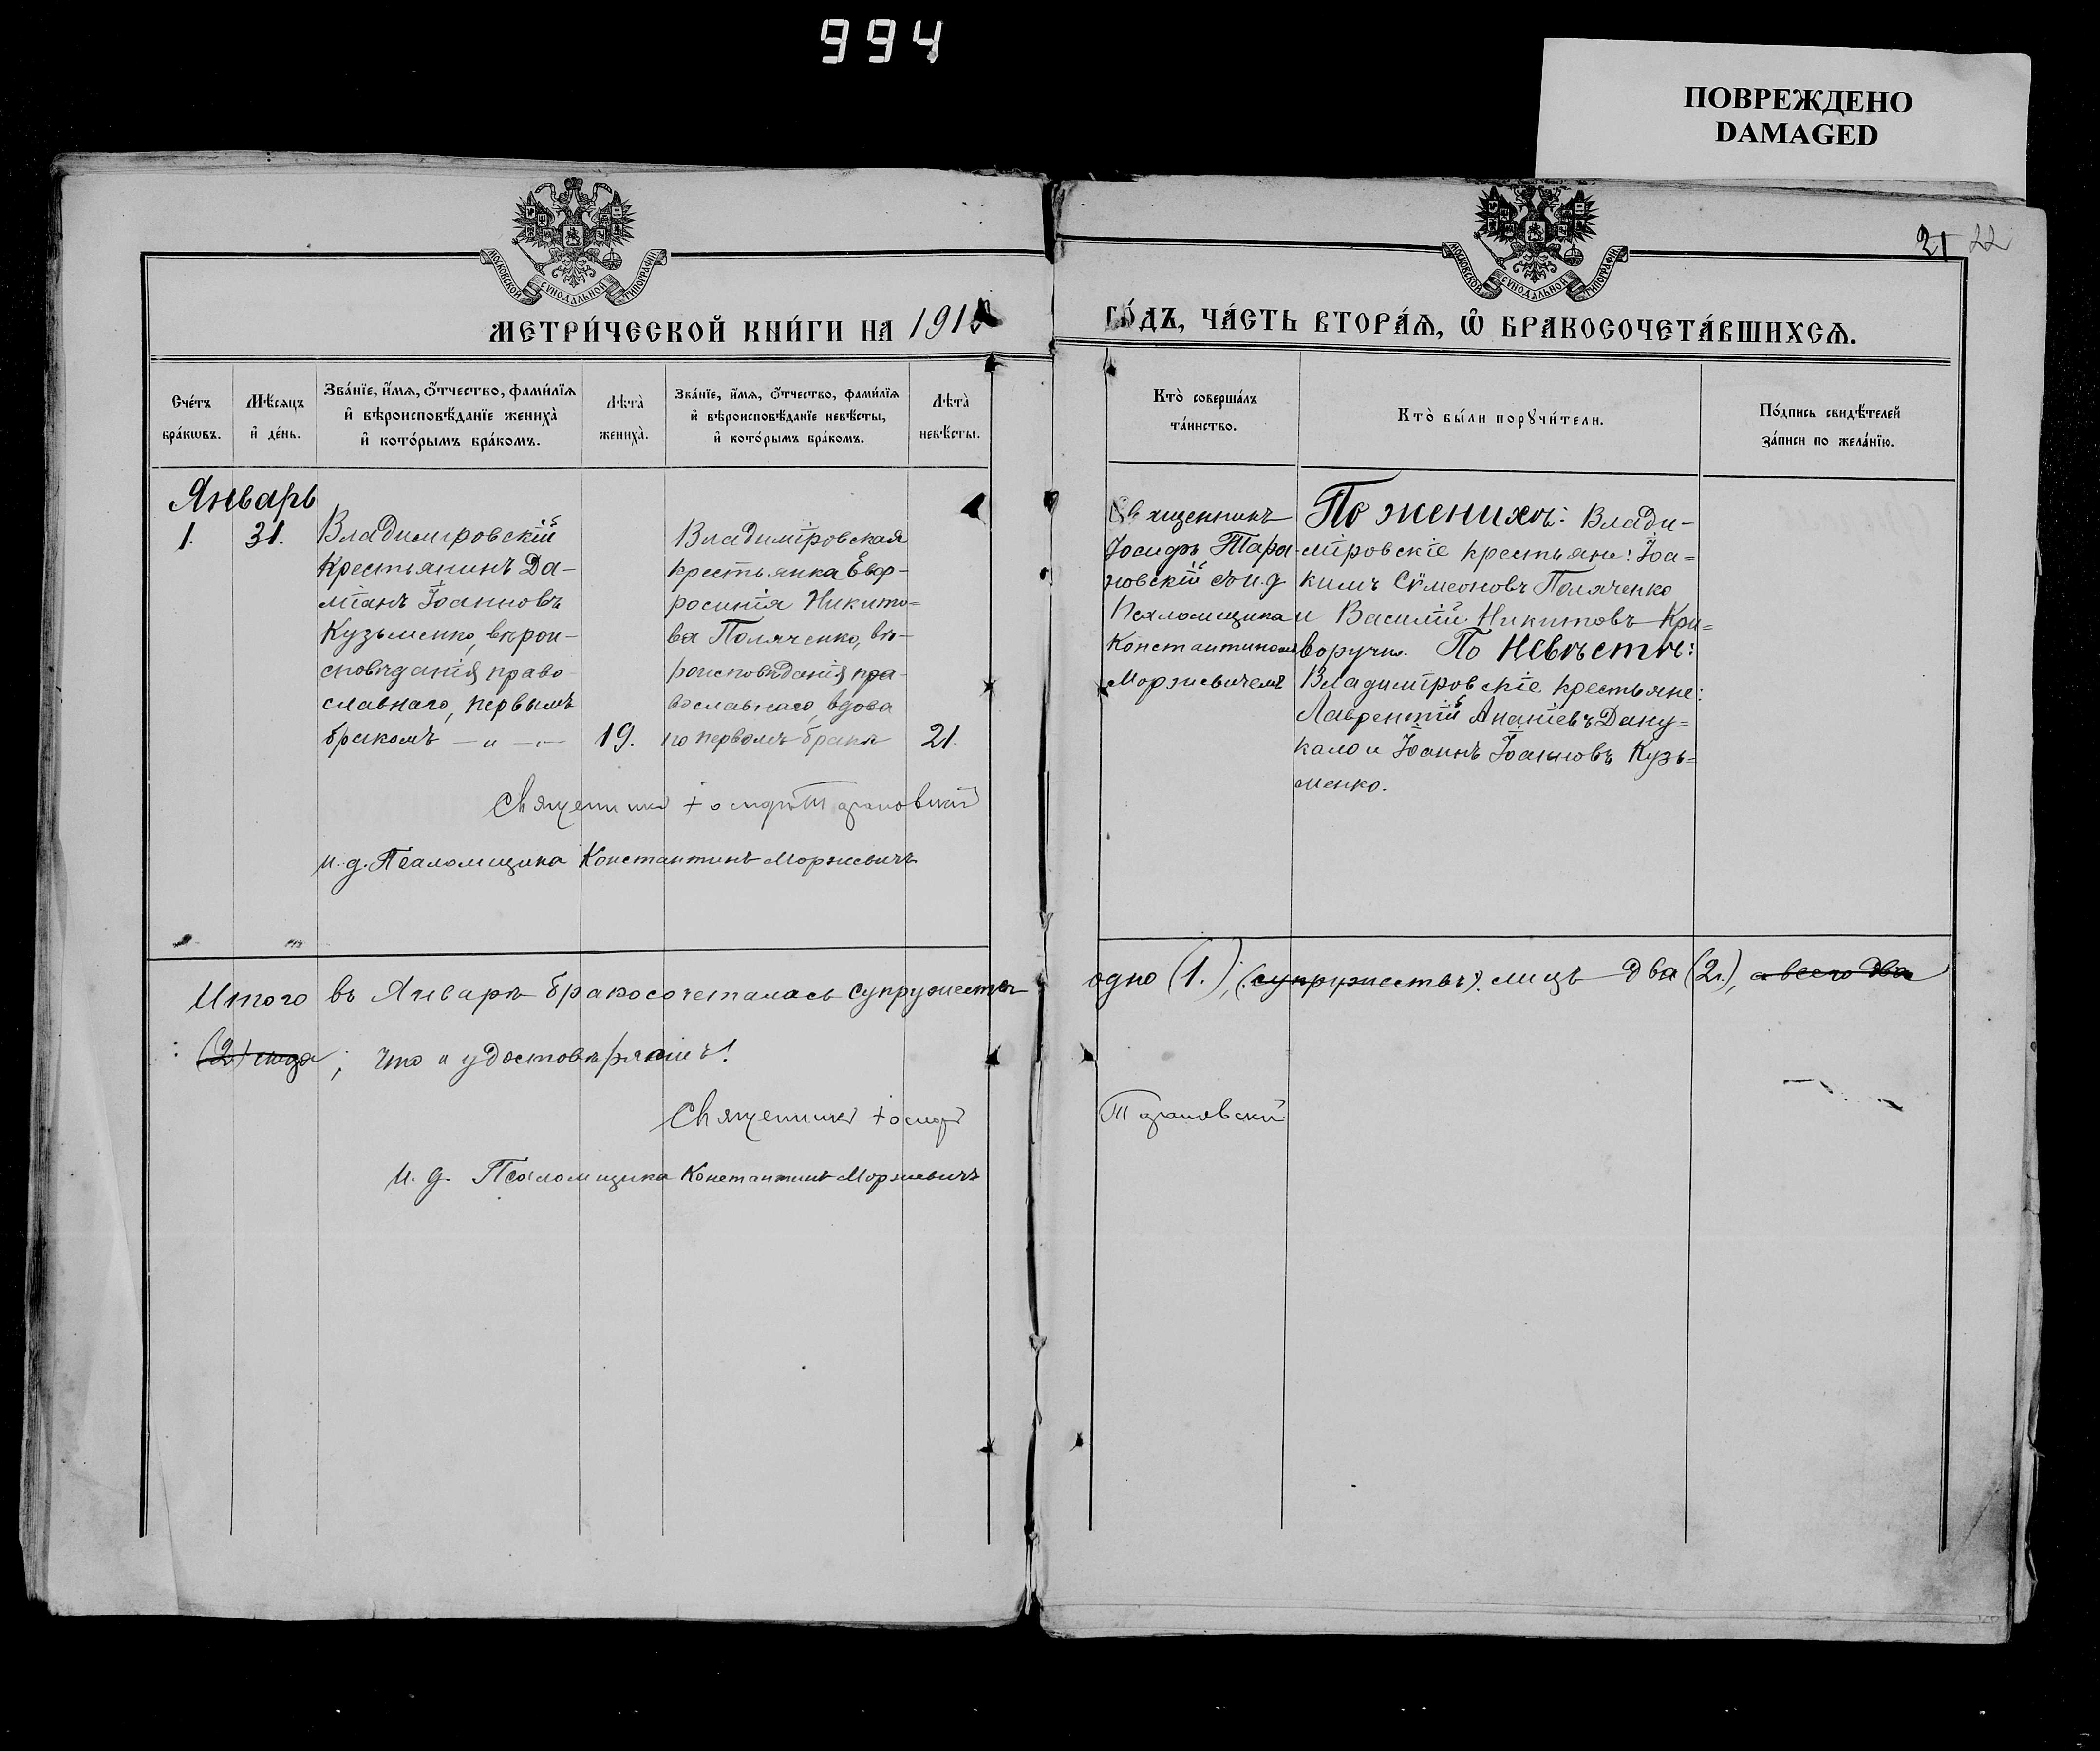 994
ПОВРЕЖДЕНО
DAMAGED
МОСКОВСКОЙ СѴНОДАЛЬНОЙ ТИПОГРАФІИ
МОСКОВСКОЙ СѴНОДАЛЬНОЙ ТИПОГРАФІИ
21 22
МЕТРИ́ЧЕСКОЙ КНИ́ГИ НА 191
ГО́ДЪ, ЧА́СТЬ ВТОРА́Ѧ, Ѡ҆ БРАКОСОЧЕТА́ВШИХСѦ.
Сче́тъ
бра́кѡвъ.
Мѣ́сяцъ
и҆ де́нь.
Зва́нїе, и҆́мѧ, ѻ҆́тчество, фами́лїѧ
и҆ вѣроисповѣ́данїе жениха̀
и҆ кото́рымъ бра́комъ.
Лѣта̀
жениха̀.
Зва́нїе, и҆́мѧ, ѻ҆́тчество, фами́лїѧ
и҆ вѣроисповѣ́данїе невѣ́сты,
и҆ кото́рымъ бра́комъ.
Лѣта̀
невѣ́сты.
Кто̀ соверша́лъ
та́инство.
Кто̀ бы́ли порꙋчи́тели.
По́дпись свидѣ́телей
за́писи по жела́нїю.
Январь
1.
31.
Владимировскій
крестьянинъ Да-
міанъ Іоанновъ
Кузьменко, вѣрои-
сповѣданія право-
славнаго, первымъ
бракомъ — „ —
19.
Владиміровская
крестьянка Евф-
росинія Никито-
ва Поляченко, вѣ-
роисповѣданія пра-
вославнаго, вдова
по первомъ бракѣ
21.
Священникъ
Іосифъ Тара-
новскій съ и.д.
Псаломщика
Константиномъ
Морзиевичемъ
По женихѣ: Влади-
міровскіе крестьяне: Іоа=
кимъ Сѵмеоновъ Поляченко
и Василій Никитовъ Кри=
воручко. По невѣстѣ:
Владиміровскіе крестьяне:
Лаврентій Ананіевъ Даку=
кало и Іоаннъ Іоанновъ Кузь=
менко.
Священникъ Іосифъ Тарановскій
и.д. Псаломщика Константинъ Морзиевичъ
Итого въ Январѣ бракосочеталось супружествъ
одно (1.), (супружествъ). лицъ два (2.), а всего два
(2) лица; что и удостовѣряемъ!
Священникъ Іосифъ
Тарановскій
И. д. Псаломщика Константинъ Морзиевичъ